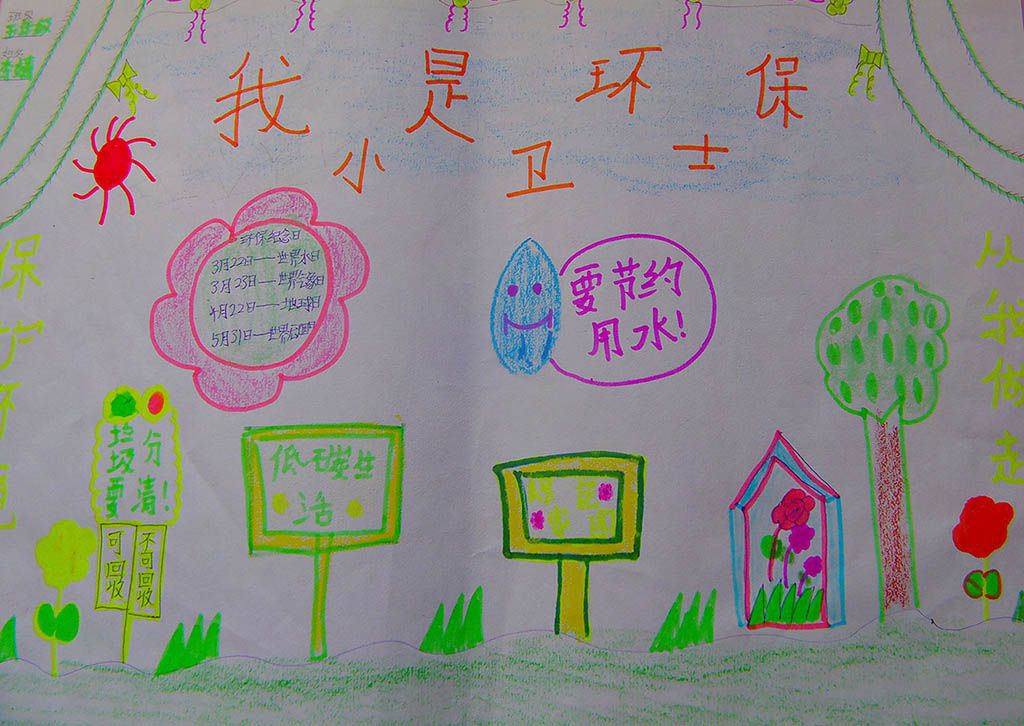 班级
五年级
姓名
我是环保
小卫士
环保纪念日
3月22日——世界水日
3月23日——世界气象日
4月22日——地球日
5月31日——世界无烟日
要节约
用水！
保护环境
从我做起
垃圾分
要清！
可回收
不可回收
低碳生
活